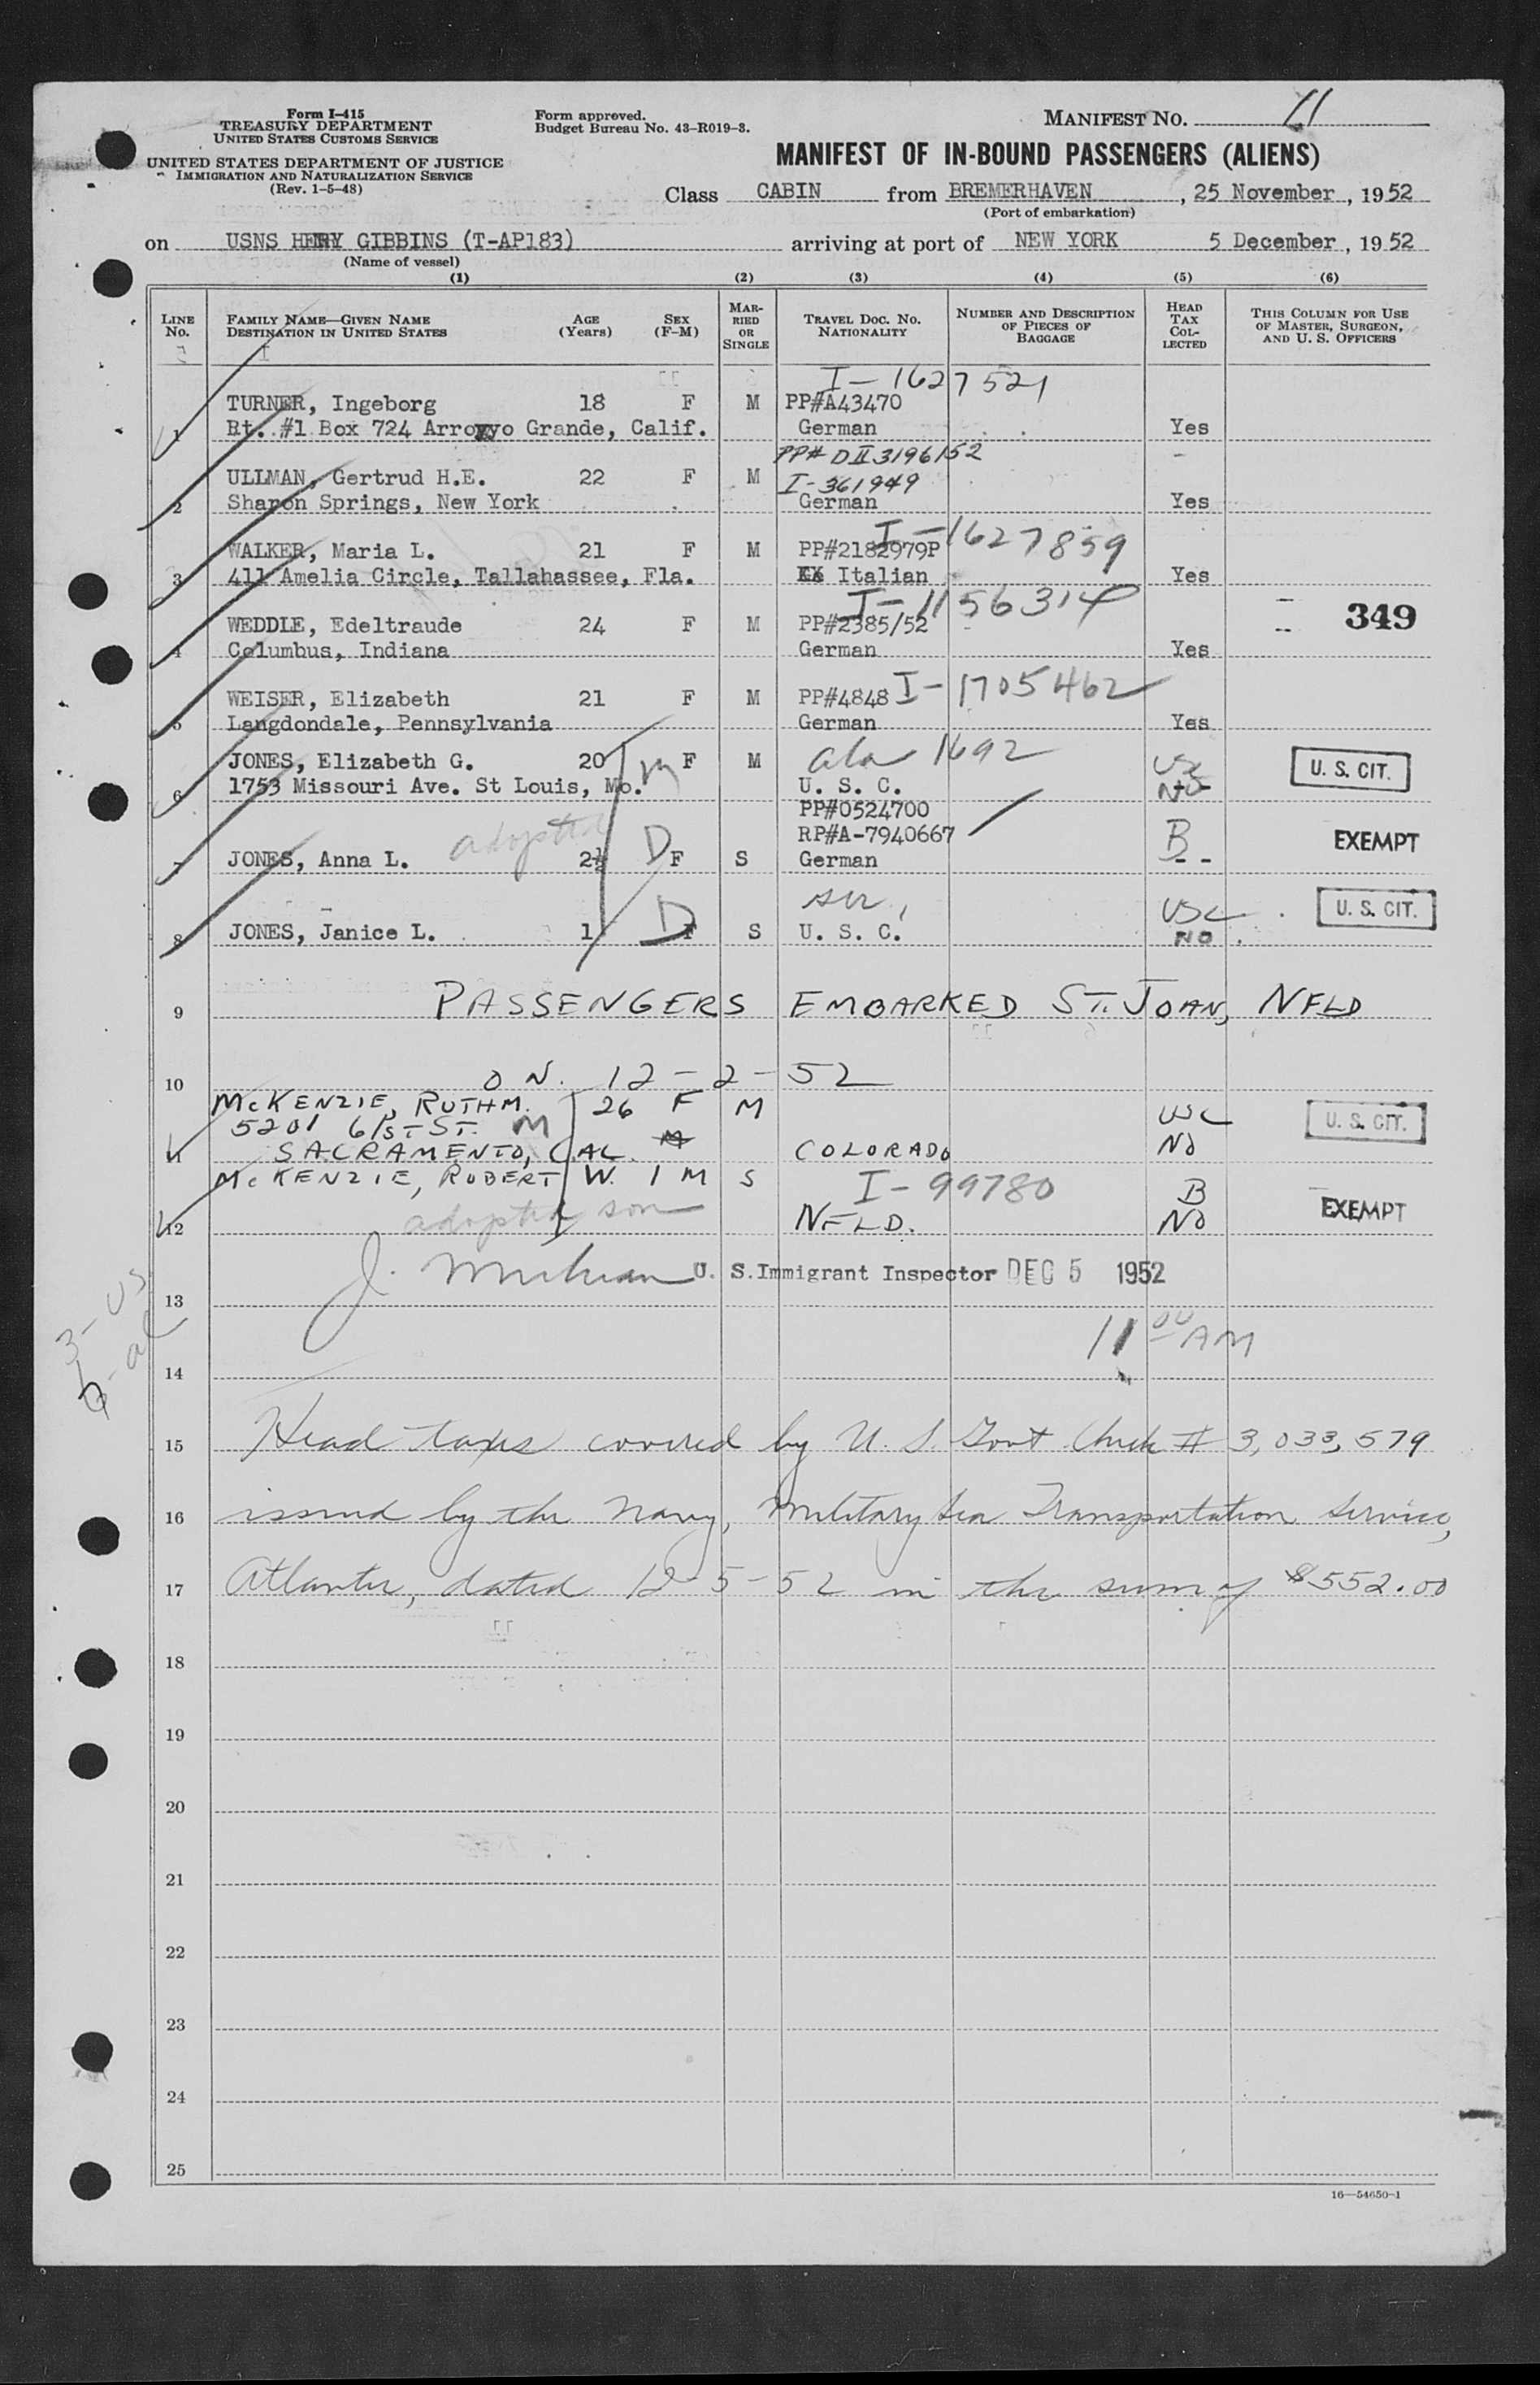 Form I-415
TREASURY DEPARTMENT
UNITED STATES CUSTOMS SERVICE
UNITED STATES DEPARTMENT OF JUSTICE
IMMIGRATION AND NATURALIZATION SERVICE
(Rev. 1-5-48)
Form approved.
Budget Bureau No. 43-R019-3.
MANIFEST NO. 11
MANIFEST OF IN-BOUND PASSENGERS (ALIENS)
Class CABIN from BREMERHAVEN, 25 November, 1952
(Port of embarkation)
on USNS HENRY GIBBINS (T-AP183) arriving at port of NEW YORK 5 December, 1952
(Name of vessel)
(1) (2) (3) (4) (5) (6)
LINE No.
FAMILY NAME—GIVEN NAME
DESTINATION IN UNITED STATES
AGE (Years)
SEX (F-M)
MARRIED OR SINGLE
TRAVEL DOC. NO. NATIONALITY
NUMBER AND DESCRIPTION OF PIECES OF BAGGAGE
HEAD TAX COLLECTED
THIS COLUMN FOR USE OF MASTER, SURGEON, AND U. S. OFFICERS
I-1627521
TURNER, Ingeborg 18 F M PP#A43470
1 Rt. #1 Box 724 Arroyo Grande, Calif. German Yes
PP# DII3196152
ULLMAN, Gertrud H.E. 22 F M I-361949
2 Sharon Springs, New York German Yes
I-1627859
WALKER, Maria L. 21 F M PP#2182979P
3 411 Amelia Circle, Tallahassee, Fla. Italian Yes
I-1156314
WEDDLE, Edeltraude 24 F M PP#2385/52 349
4 Columbus, Indiana German Yes
WEISER, Elizabeth 21 F M PP#4848 I-1705462
5 Langdondale, Pennsylvania German Yes
JONES, Elizabeth G. 20 M F M 1692 USC U. S. CIT.
6 1753 Missouri Ave. St Louis, Mo. U. S. C. NO
PP#0524700
adopted RP#A-7940667 B EXEMPT
7 JONES, Anna L. 2½ D F S German --
USC U. S. CIT.
8 JONES, Janice L. 1 D F S U. S. C. NO
9 PASSENGERS EMBARKED ST. JOAN, NFLD
10 ON. 12-2-52
McKENZIE, RUTH M. 26 F M USC U. S. CIT.
5201 61ST ST. M
11 SACRAMENTO, CAL. COLORADO NO
McKENZIE, ROBERT W. 1 M S I-99780 B EXEMPT
12 adopted son NFLD. NO
J. U. S. Immigrant Inspector DEC 5 1952
13
11 00 AM
3-US
14
15 Head taxes covered by U. S. Govt Check # 3,033,579
16 issued by the Navy, Military Sea Transportation Service,
17 Atlantic, dated 12-5-52 in the sum of $552.00
18
19
20
21
22
23
24
25
16—54650-1